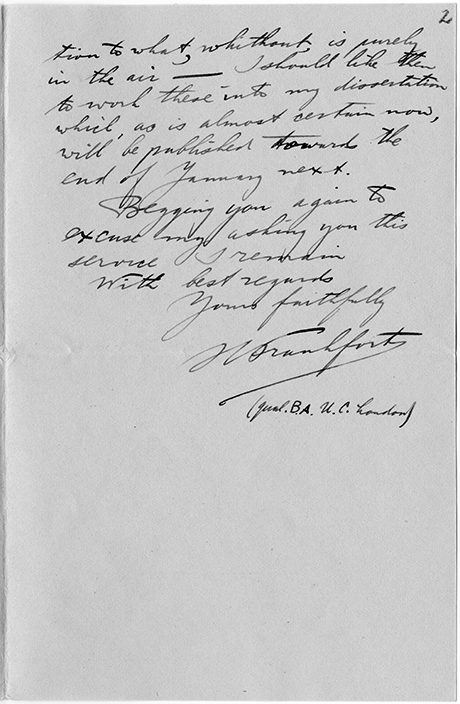 2
tion to what, whithout, is purely
in the air — I should like then
to work these into my dissertation
which, as is almost certain now,
will be published towards the
end of January next.
Begging you again to
excuse my asking you this
service I remain
With best regards
Yours faithfully
H Frankfort
(qual. B.A. U.C. London)